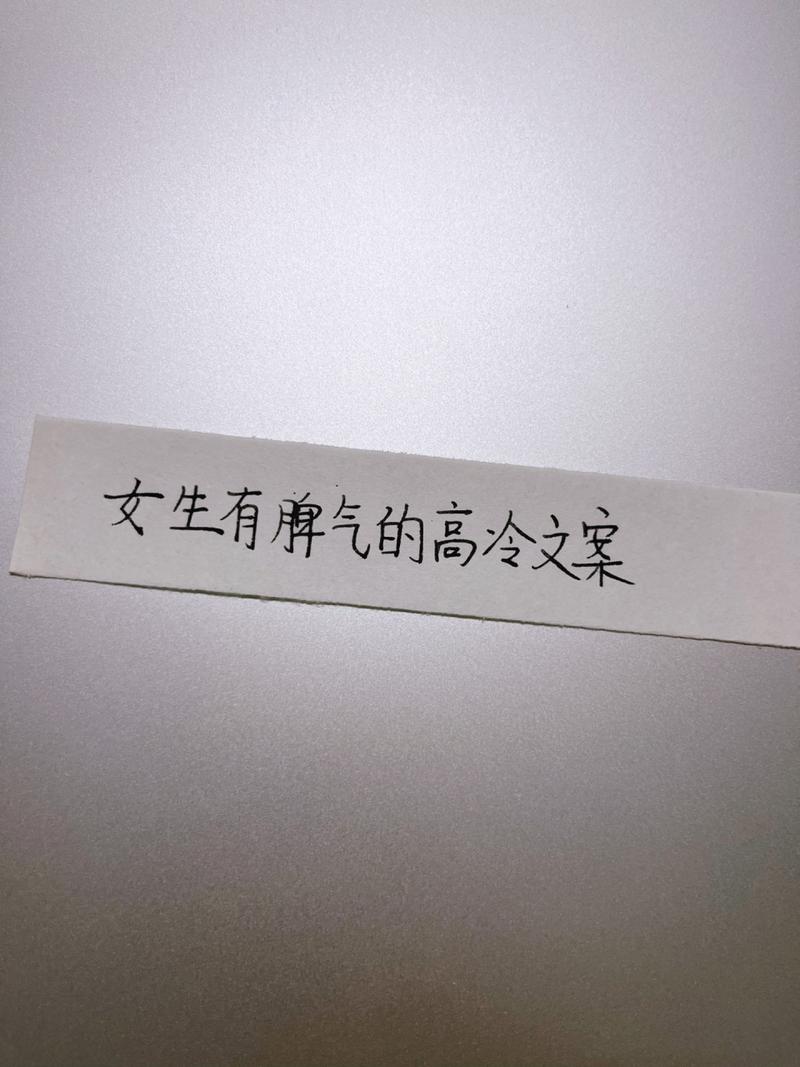 女生有脾气的高冷文案